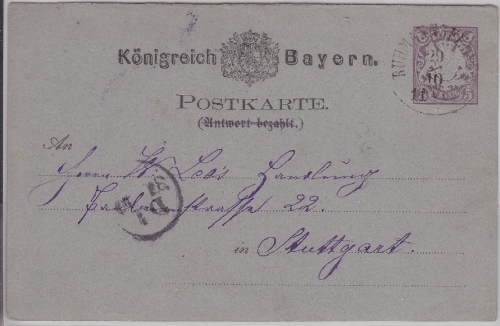 Königreich Bayern.
POSTKARTE.
(Antwort bezahlt.)
An
Herrn W. Handlung
strasse 22.
in Stuttgart.